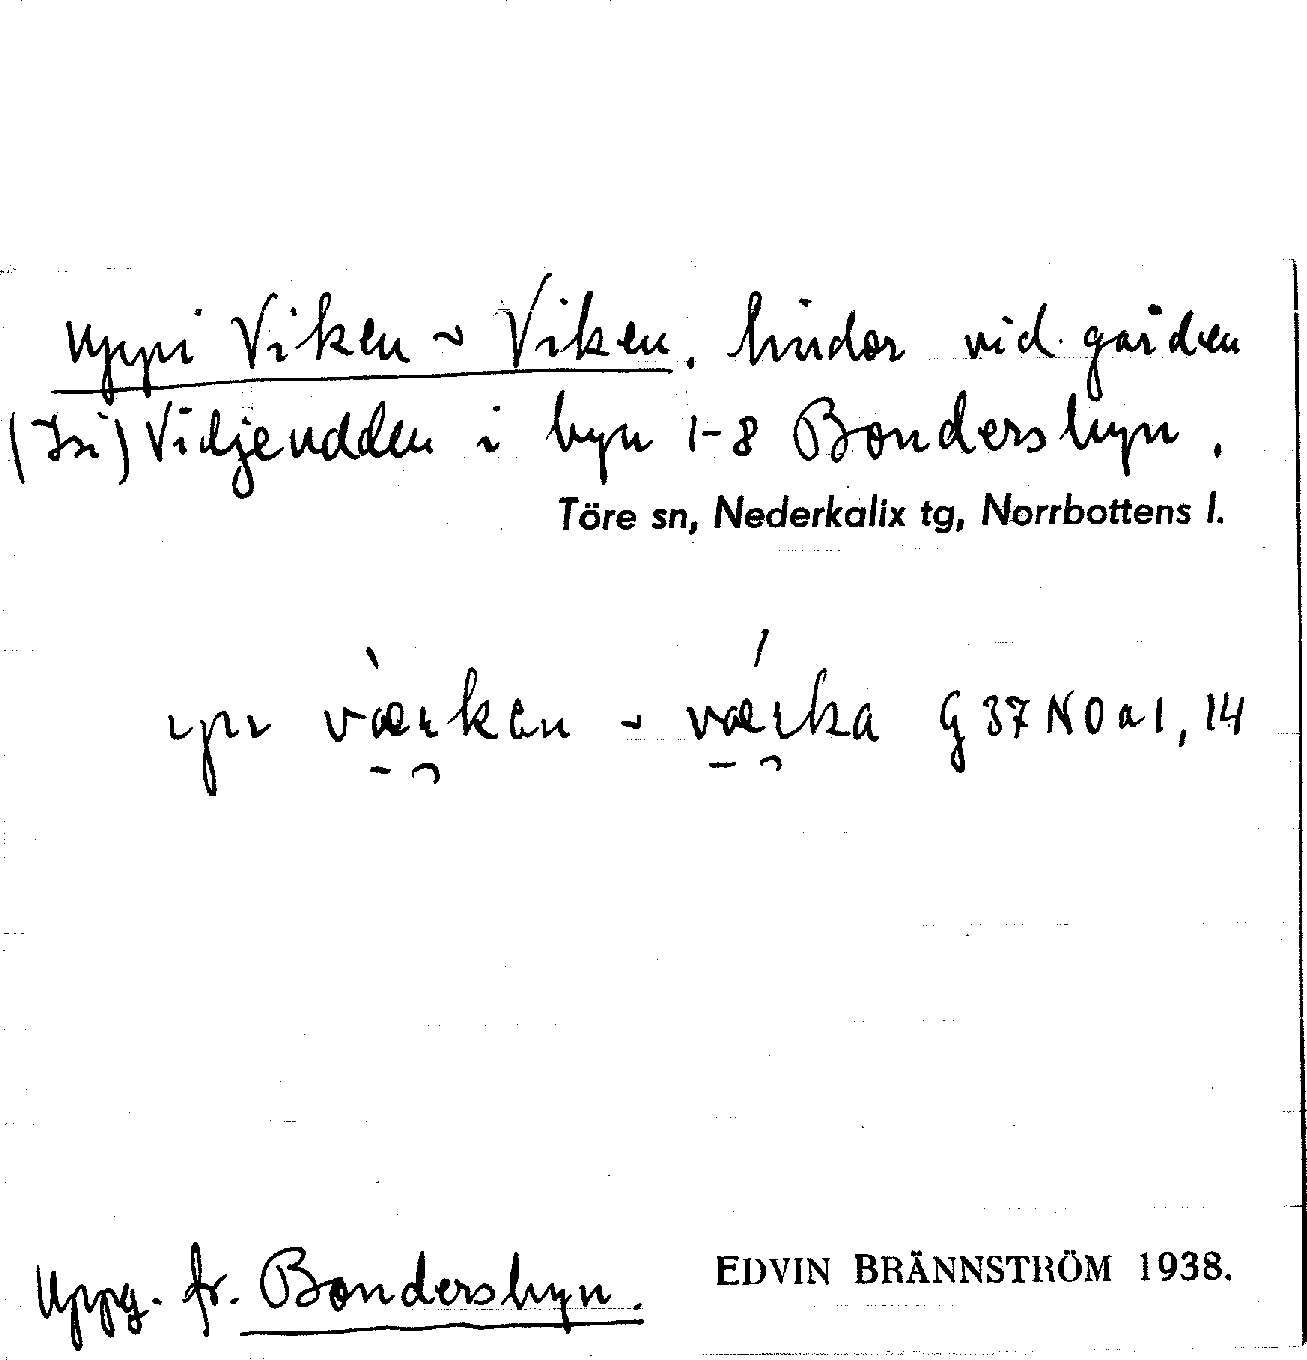 uppi Viken ~ Viken. lindor vid gården
(Isi) Vidjeudden i byn 1-8 Bondersbyn.
Töre sn, Nederkalix tg, Norrbottens l.
ypı værkan ~ værka G 37 NO a 1, 14
Uppg. fr. Bondersbyn.
EDVIN BRÄNNSTRÖM 1938.